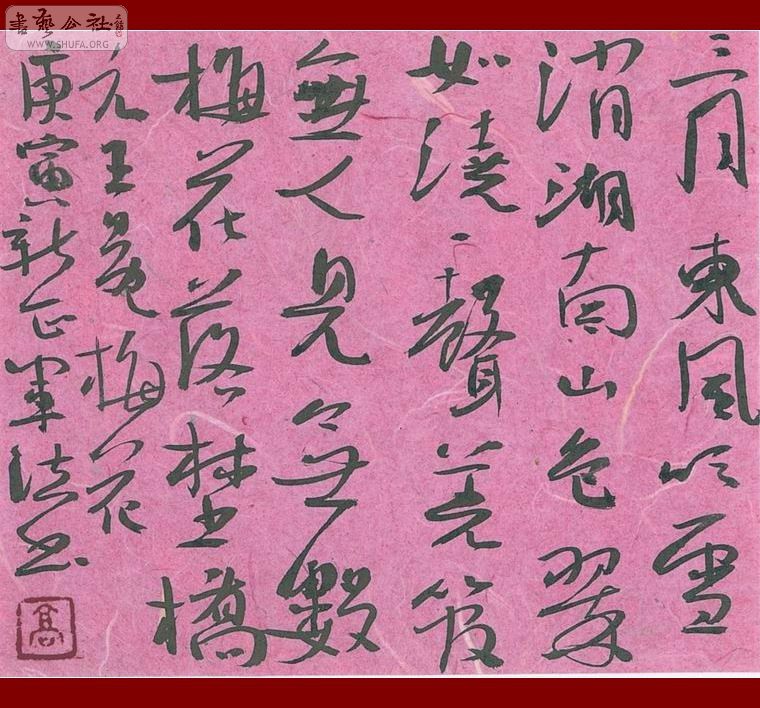 書藝公社
WWW.SHUFA.ORG
三月東風吹雪
消湖南山色翠
如澆一聲羌管
無人見無數
梅花落埜橋
元王冕梅花
庚寅新正軍法书
高